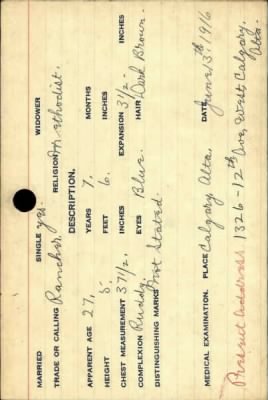 MARRIED SINGLE yes. WIDOWER
TRADE OR CALLING Rancher. RELIGION Methodist.
DESCRIPTION.
APPARENT AGE 27, YEARS 7, MONTHS
HEIGHT 5. FEET 6. INCHES
CHEST MEASUREMENT 37½. INCHES EXPANSION 3½. INCHES
COMPLEXION Ruddy. EYES Blue. HAIR Dark Brown.
DISTINGUISHING MARKS Not Stated.
MEDICAL EXAMINATION. PLACE Calgary, Alta. DATE June 13th 1916
Present Address 1326-12th Ave, West Calgary, Alta.